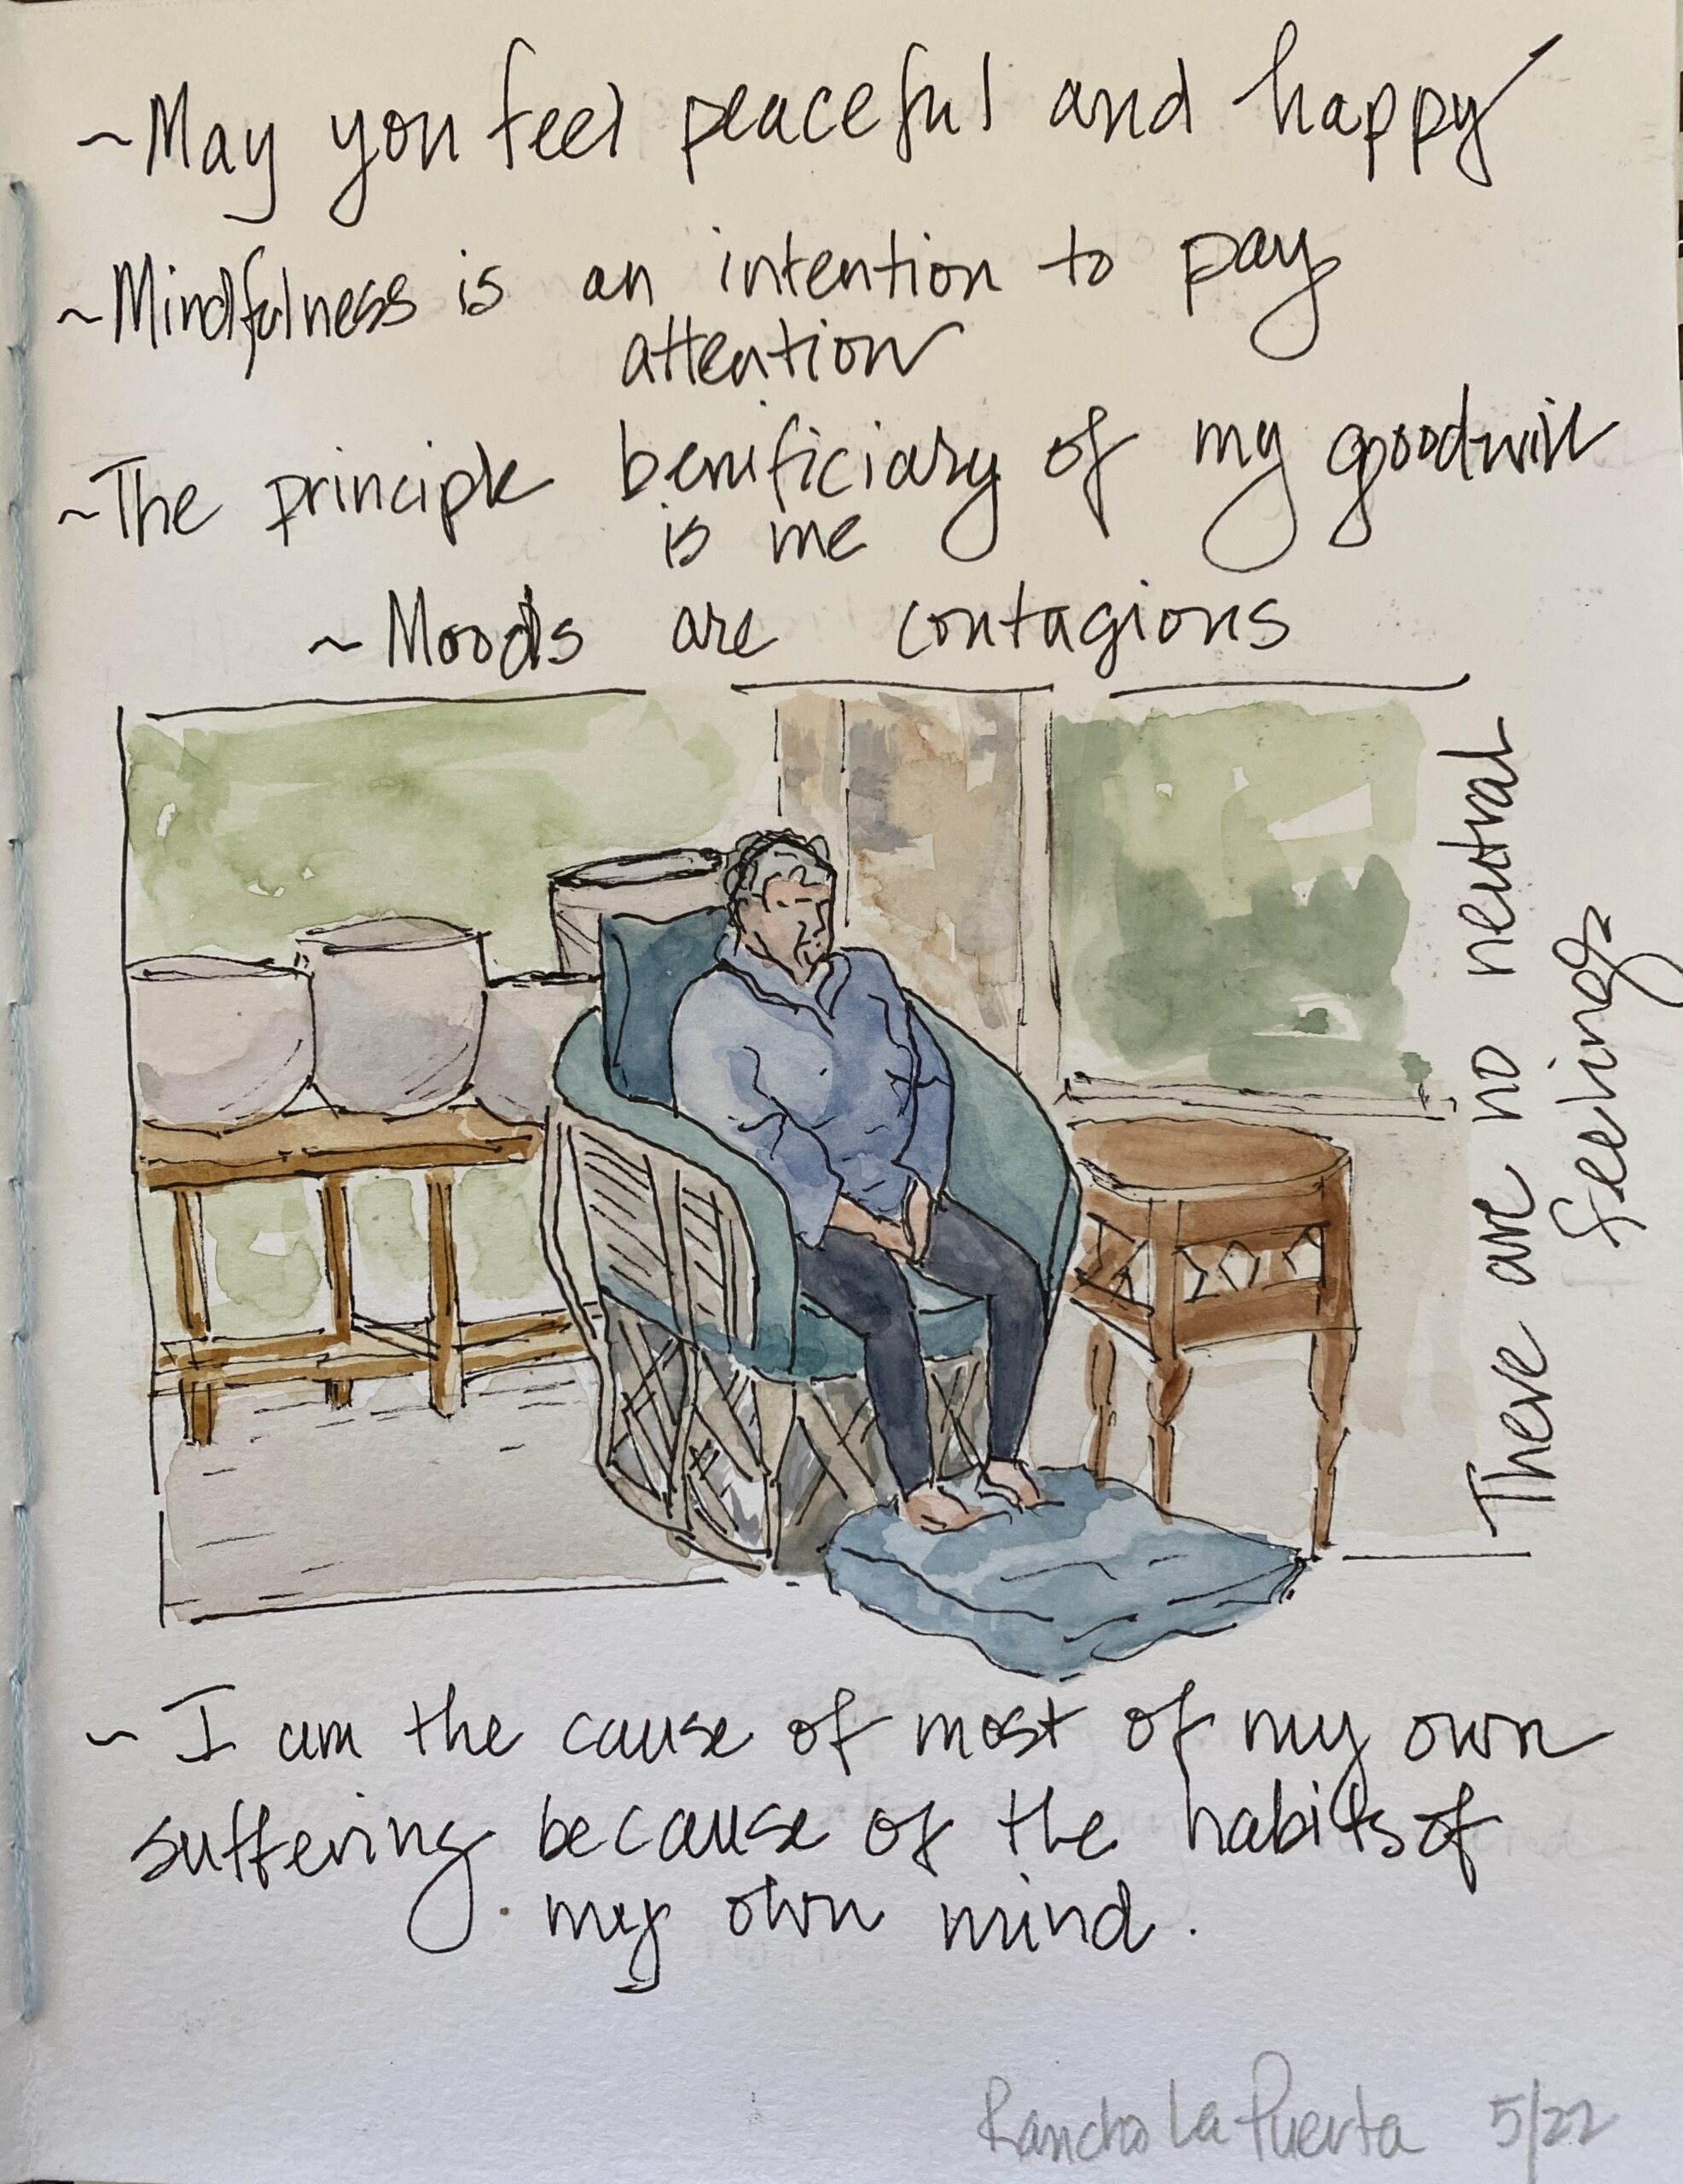 ~ May you feel peaceful and happy
~ Mindfulness is an intention to pay
attention
~ The principle benificiary of my goodwill
is me
~ Moods are contagions
There are no neutral
feelings
~ I am the cause of most of my own
suffering because of the habits of
my own mind.
Rancho La Puerta 5/22